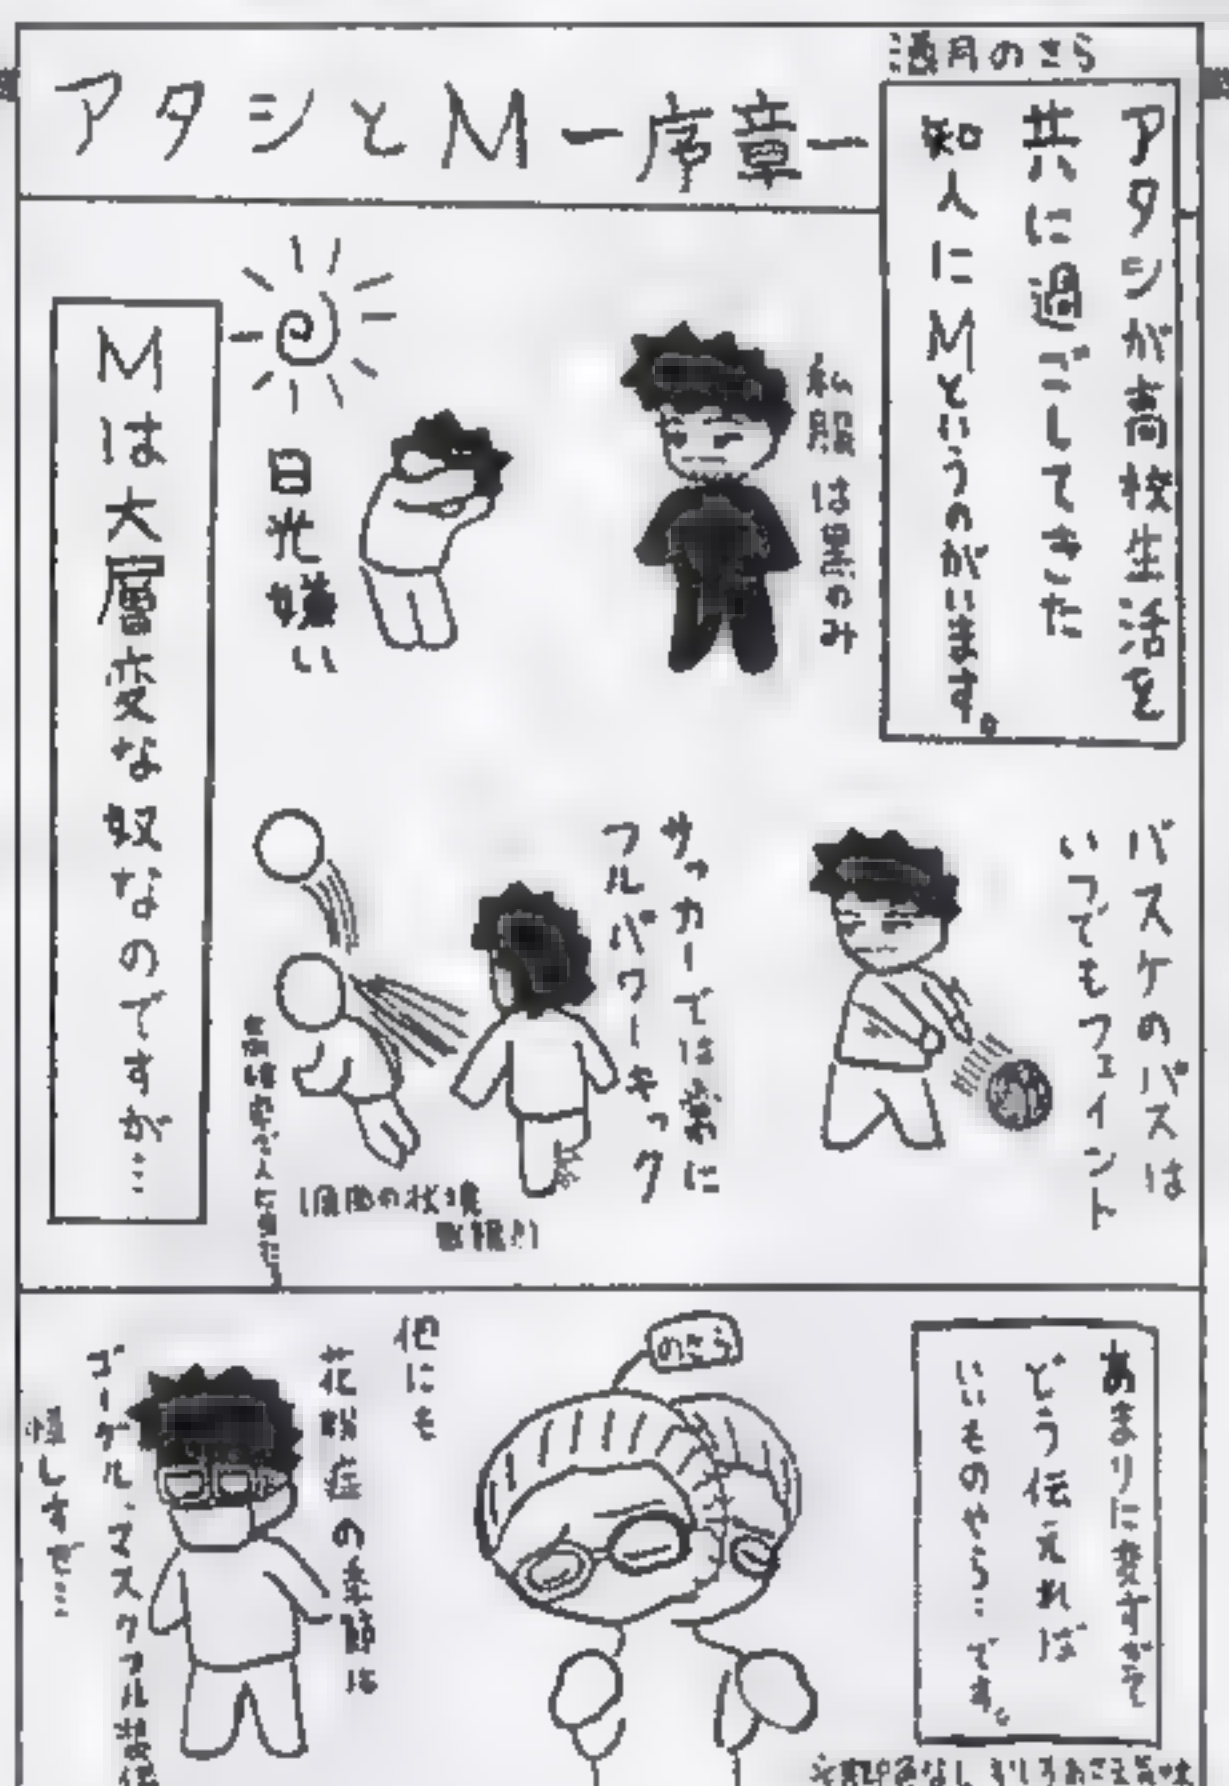 アタシとM ー序章ー
のさら
アタシが高校生活を
共に過ごしてきた
知人にMというのがいます。
私服は黒のみ
日光嫌い
Mは大層変な奴なのですが…
バスケのパスは
いつでもフェイント
サッカーでは常に
フルパワーキック
あまりに変すぎて
どう伝えれば
いいものやら…です。
のさら
他にも
花粉症の季節は
ゴーグル、マスクフル装備
怪しすぎ…